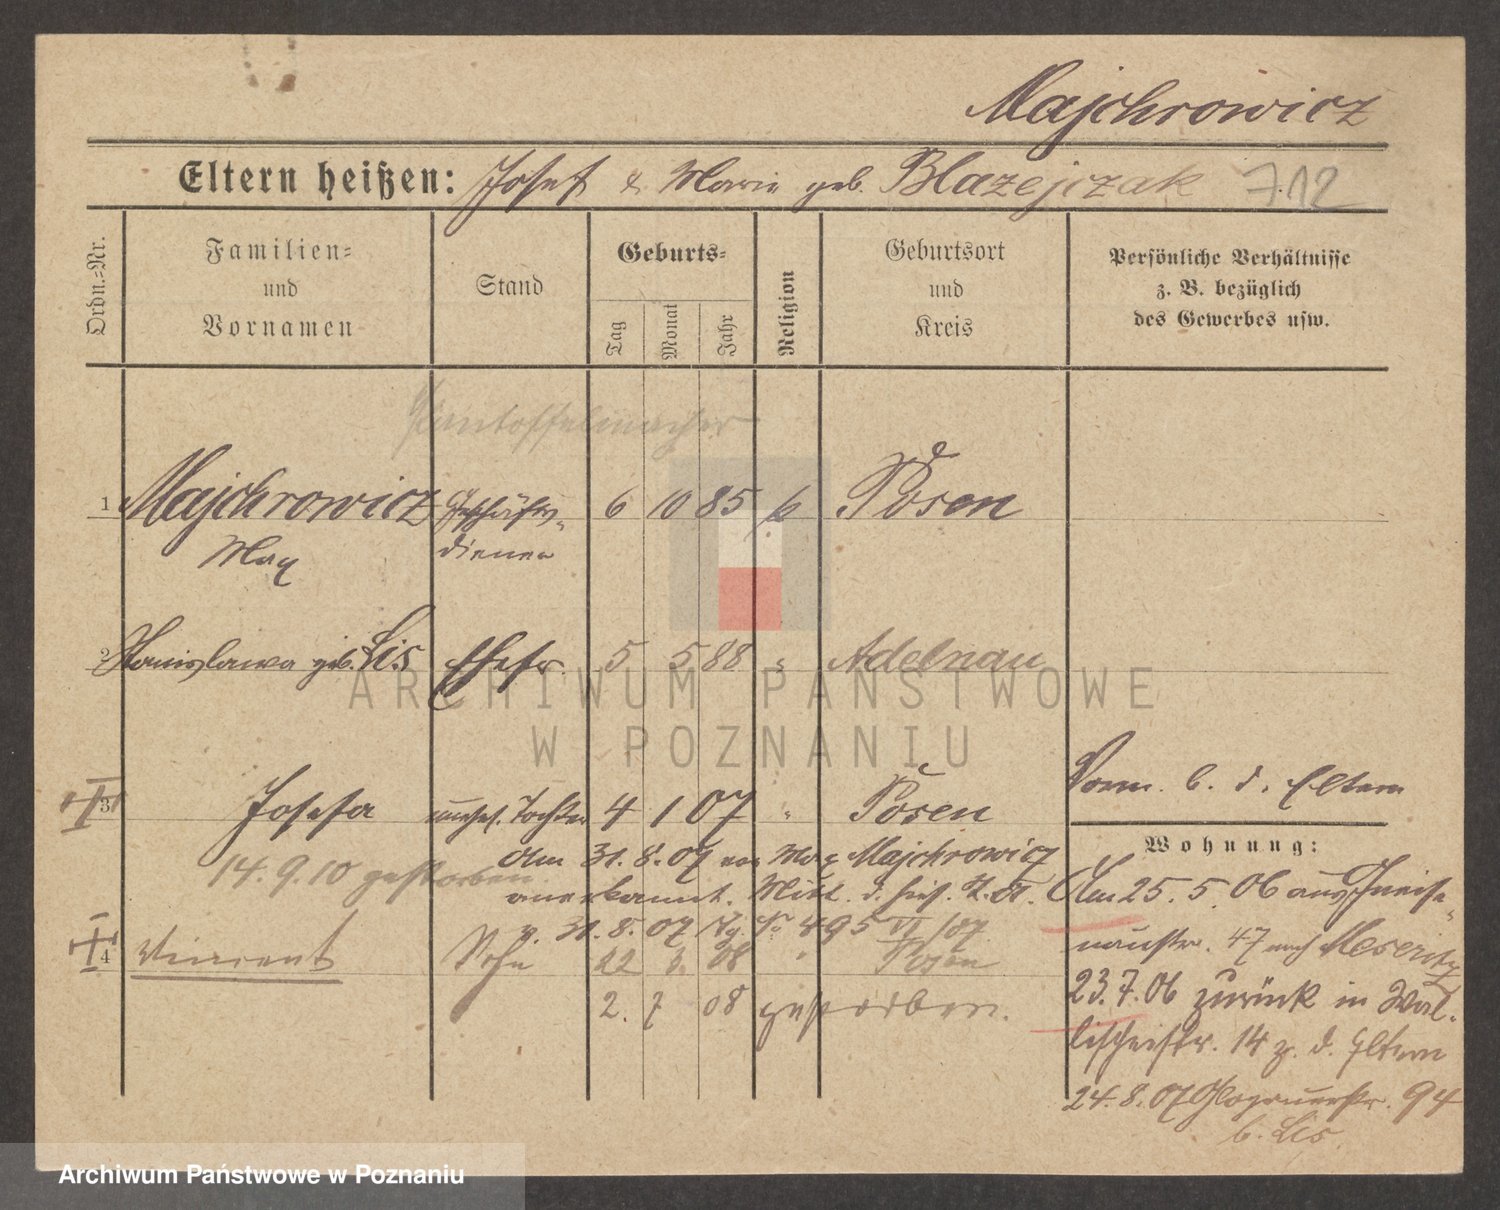 Majchrowicz
Eltern heißen: Josef & Marie geb. Błażejczak 712
Ordn.-Nr.
Familien-
und
Vornamen
Stand
Geburts-
Tag
Monat
Jahr
Religion
Geburtsort
und
Kreis
Persönliche Verhältnisse
z. B. bezüglich
des Gewerbes usw.
Pantoffelmacher
1 Majchrowicz Geschäfts- 6 10 85 k Posen
Max diener
2 Stanislawa geb. Lis Ehefr. 5 5 88 " Adelnau
ARCHIWUM PAŃSTWOWE
W POZNANIU
Vorm. b. d. Eltern
3 Josefa unehel. Tochter 4 1 07 " Posen
Wohnung:
14. 9. 10 gestorben
Am 31. 8. 07 von Max Majchrowicz
anerkannt. Mitt. d. hies. St. A.
v. 31. 8. 07 Tg. No 495 VI/07
4 Vincent Sohn 22 6. 08 " Posen
2. 7 08 gestorben.
Am 25. 5. 06 aus Gneise-
naustr. 47 nach Meseritz
23. 7. 06 zurück in Wal-
lischeistr. 14 z. d. Eltern
24. 8. 07 Glogauerstr. 94
b. Lis.
Archiwum Państwowe w Poznaniu